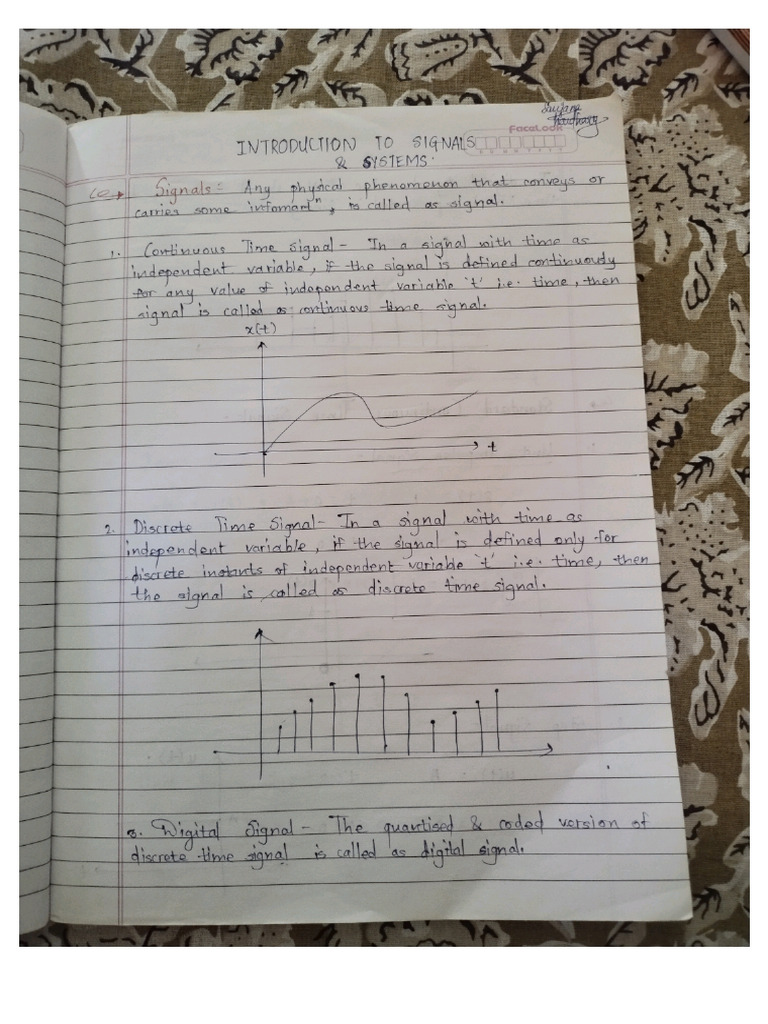 FacaLook
INTRODUCTION TO SIGNALS
& SYSTEMS.
Signals: Any physical phenomenon that conveys or
carries some infomartⁿ, is called as signal.
1. Continuous Time Signal - In a signal with time as
independent variable, if the signal is defined continuously
for any value of independent variable 't' i.e. time, then
signal is called as continuous time signal.
x(t)
t
2. Discrete Time Signal - In a signal with time as
independent variable, if the signal is defined only for
discrete instants of independent variable 't' i.e. time, then
the signal is called as discrete time signal.
3. Digital Signal - The quantised & coded version of
discrete time signal is called as digital signal.